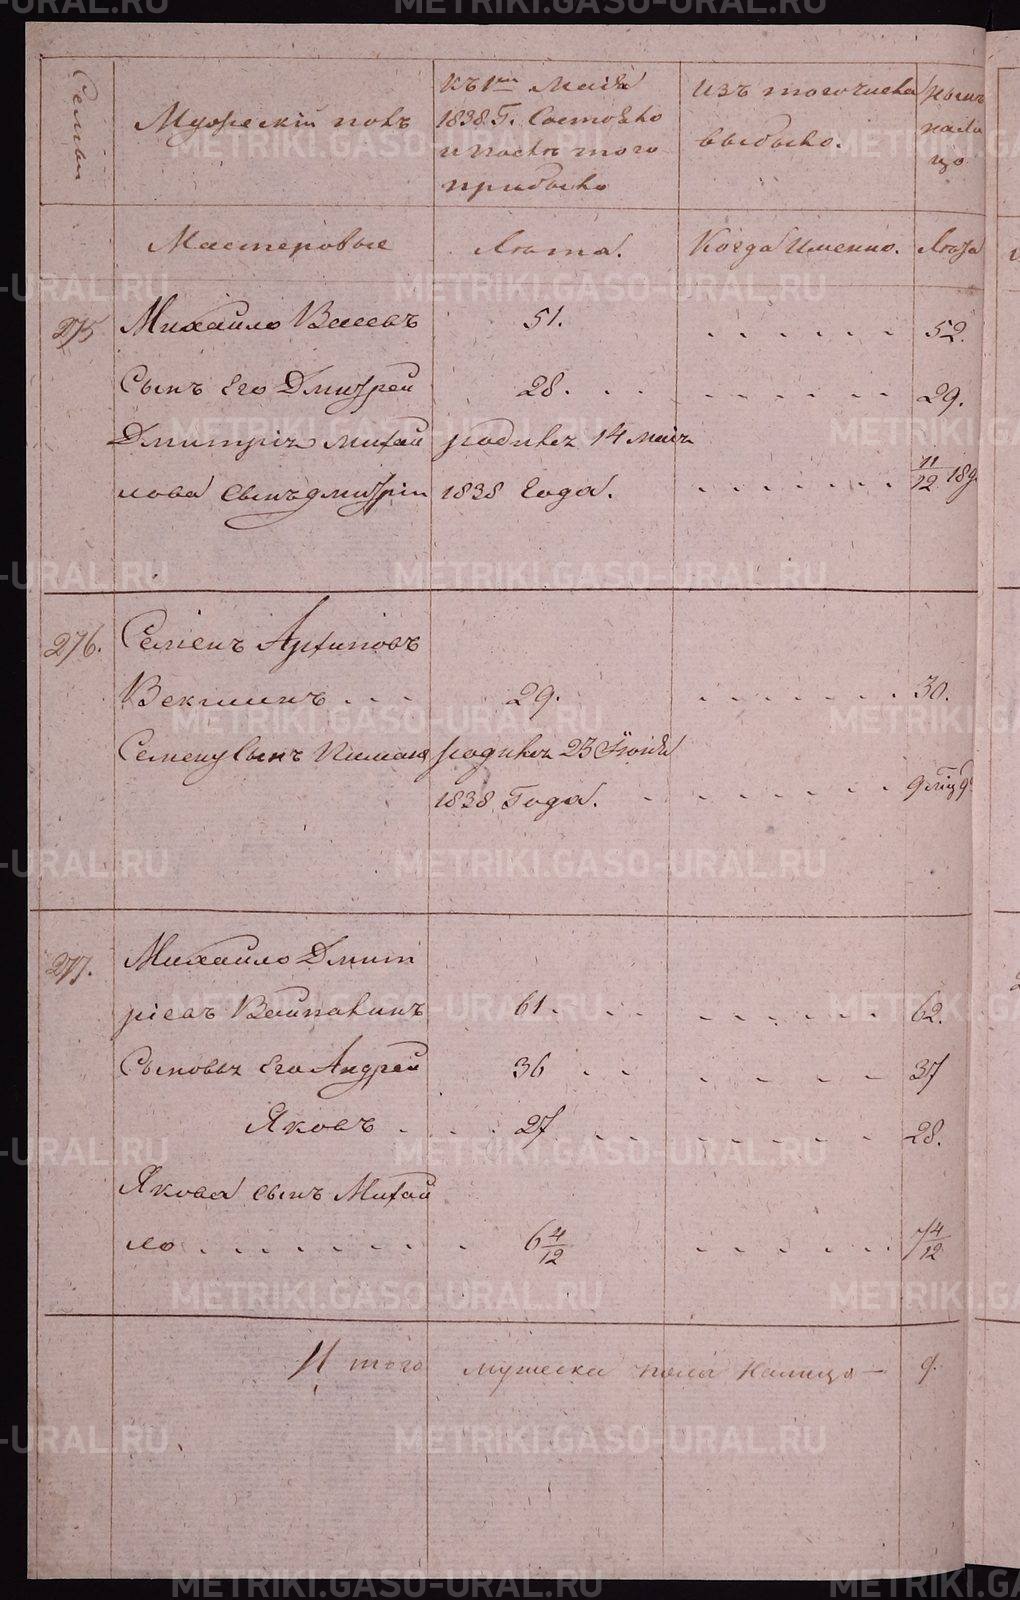 Семьи
Мужескій полъ
Къ 1му Маія
1838 Г. Состояло
и послѣ того
прибыло
изъ того числа
выбыло.
нали
цо
Мастеровые
Лѣта.
Когда именно.
Лѣта
275
Михайло
51.
52.
Сынъ Его Дмитрей
28.
29.
Михай
родился 14 маія
лова сынъ Дмитрій
1838 Года.
11/12
276.
Семенъ Архиповъ
Векшинъ
29.
30.
Семену Сынъ
родился 23 Іюля
1838 Года.
9 мц
277.
Михайло Дмит
ріевъ
61.
62.
Сыновья Его Андрей
36
37
Яковъ
27
28.
Якова сынъ Михай
ло
6 4/12
7 4/12
Итого мужеска пола налицо — 9.
METRIKI.GASO-URAL.RU